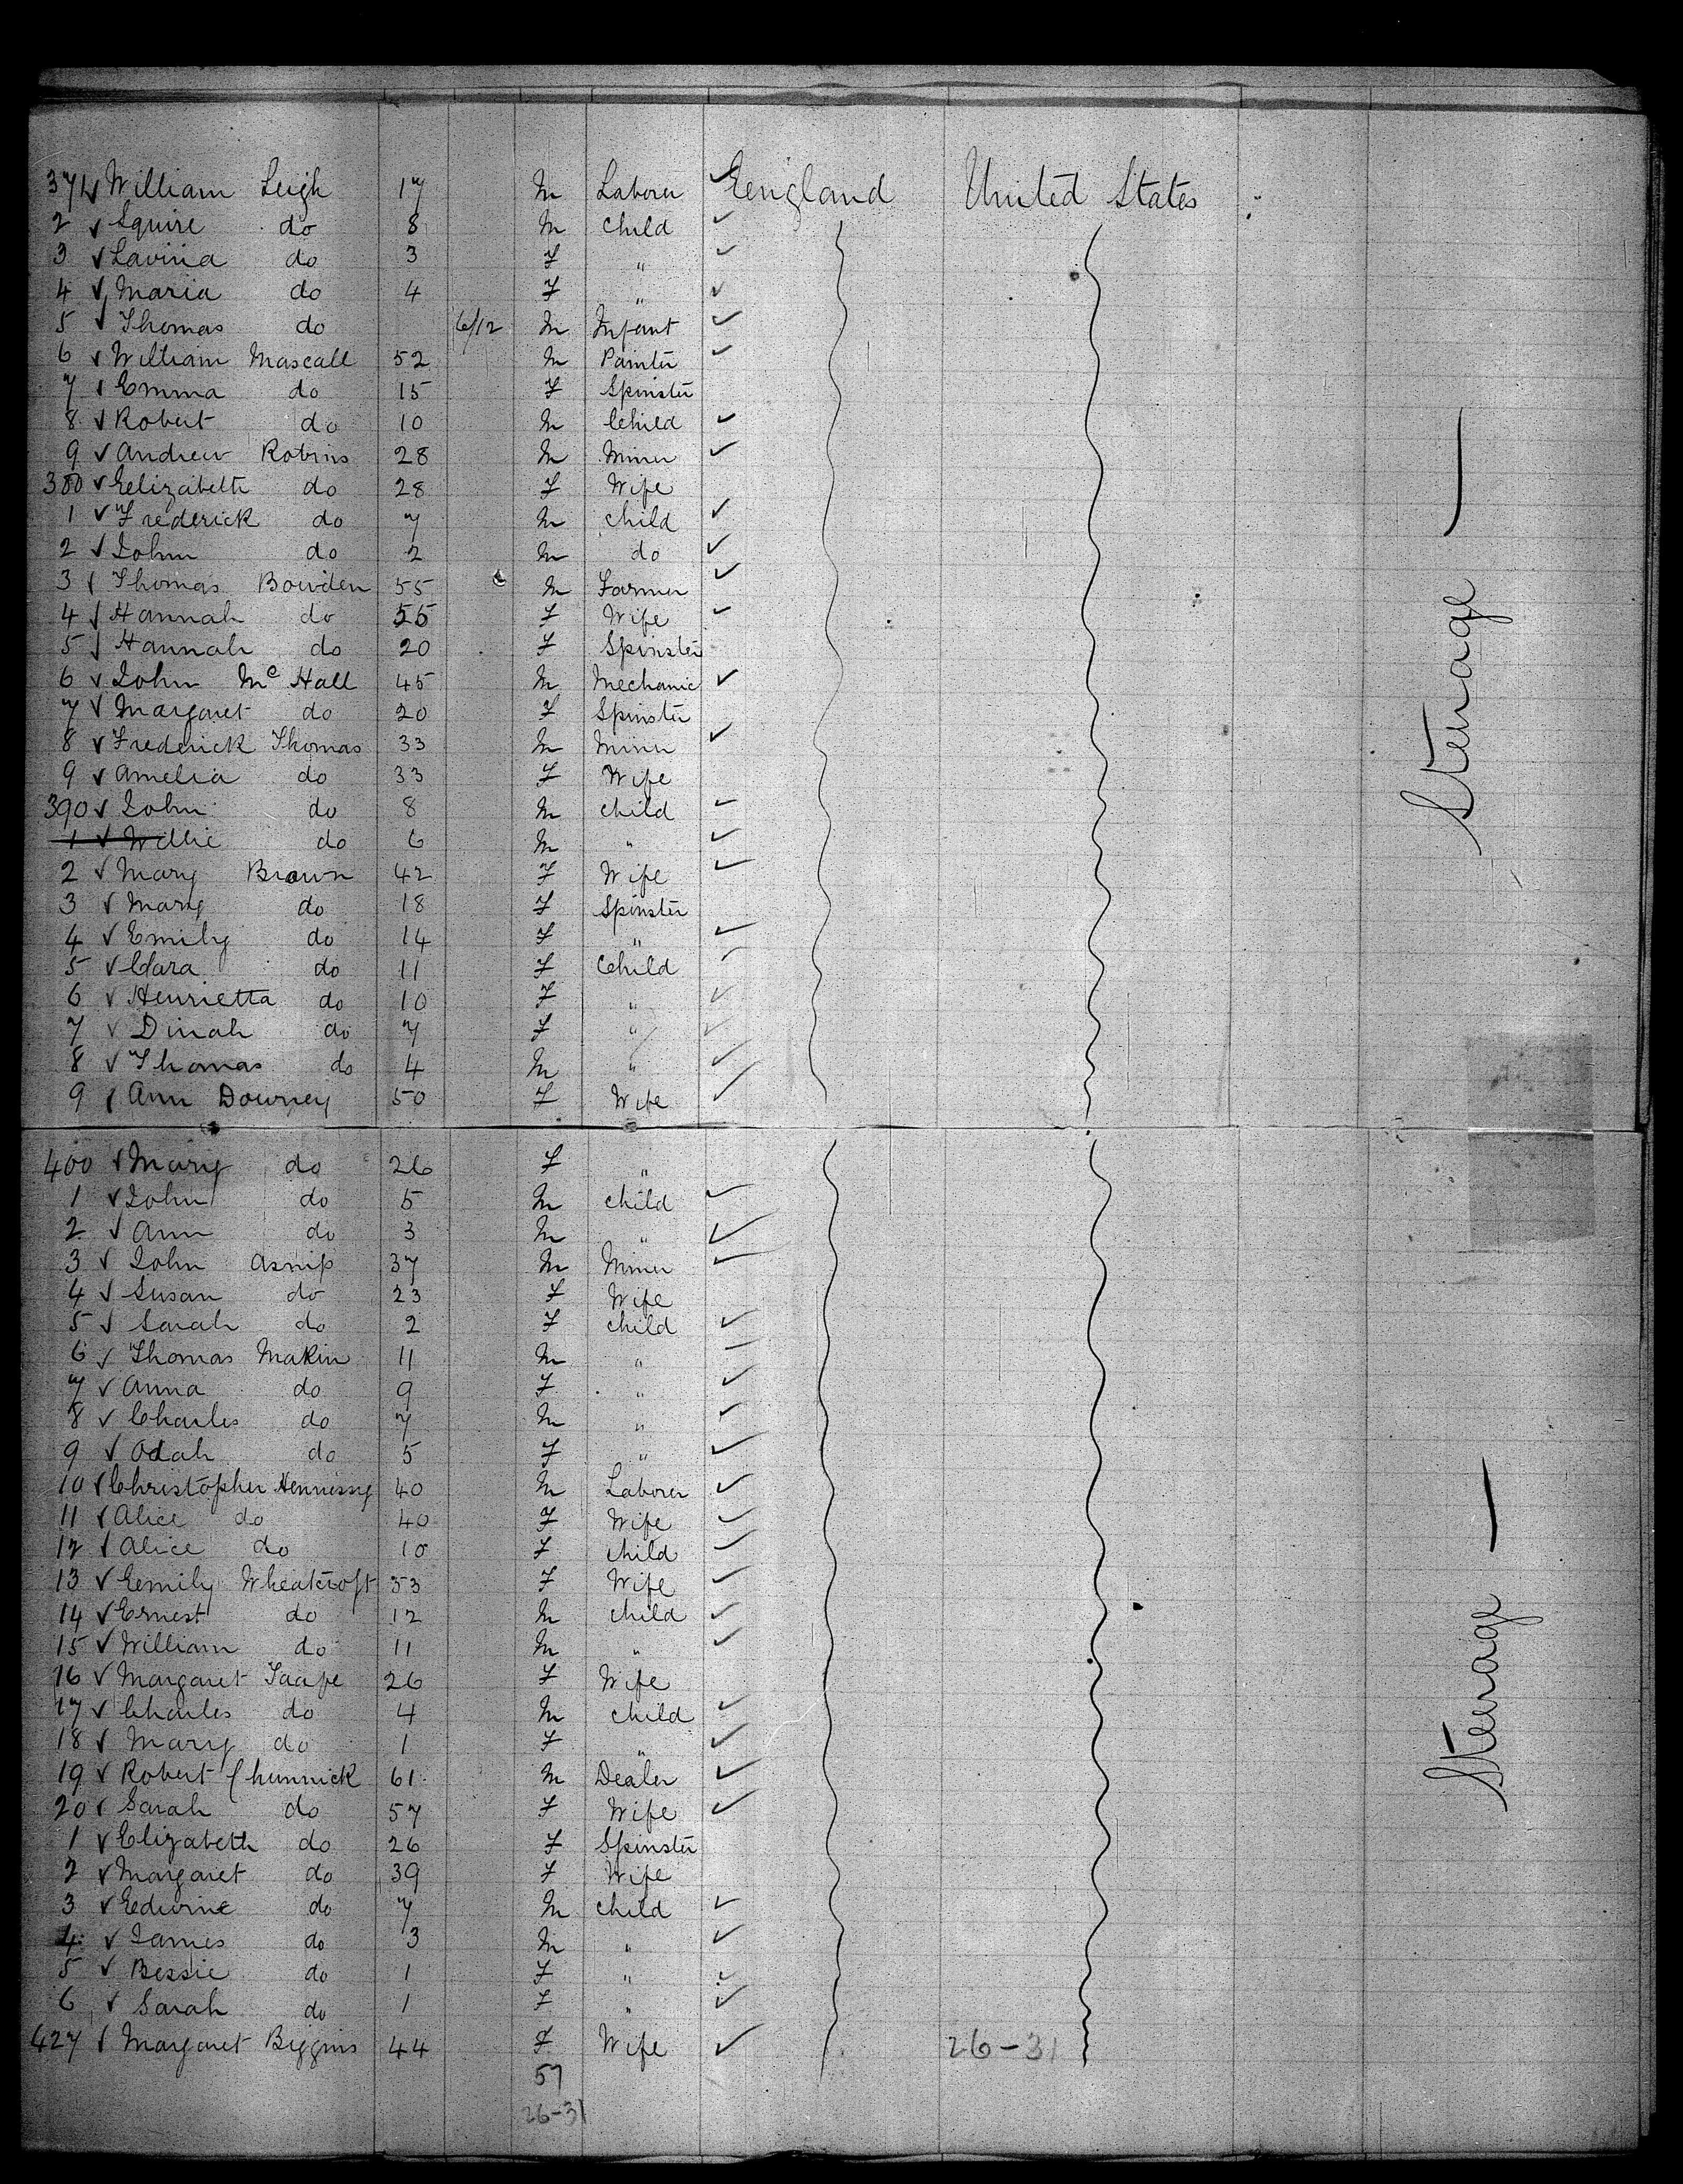 371 William Leigh 17 M Laborer England United States
2 Squire do 8 M Child
3 Lavina do 3 F "
4 Maria do 4 F "
5 Thomas do 6/12 M Infant
6 William Mascall 52 M Painter
7 Emma do 15 F Spinster
8 Robert do 10 M Child
9 Andrew Robins 28 M Miner
380 Elizabeth do 28 F Wife
1 Frederick do 7 M Child
2 John do 2 M do
3 Thomas Bowden 55 M Farmer
4 Hannah do 55 F Wife
5 Hannah do 20 F Spinster
6 John Mc Hall 45 M Mechanic
7 Margaret do 20 F Spinster
8 Frederick Thomas 33 M Miner
9 Amelia do 33 F Wife
390 John do 8 M Child
1 Willie do 6 M "
2 Mary Brown 42 F Wife
3 Mary do 18 F Spinster
4 Emily do 14 F "
5 Clara do 11 F Child
6 Henrietta do 10 F "
7 Dinah do 7 F "
8 Thomas do 4 M "
9 Ann Downey 50 F Wife
Steerage
400 Mary do 26 F "
1 John do 5 M Child
2 Ann do 3 M "
3 John Asnip 37 M Miner
4 Susan do 23 F Wife
5 Sarah do 2 F Child
6 Thomas Makin 11 M "
7 Anna do 9 F "
8 Charles do 7 M "
9 Odah do 5 F "
10 Christopher Hennissy 40 M Laborer
11 Alice do 40 F Wife
12 Alice do 10 F Child
13 Emily Wheatcroft 53 F Wife
14 Ernest do 12 M Child
15 William do 11 M "
16 Margaret 26 F Wife
17 Charles do 4 M Child
18 Mary do 1 F "
19 Robert Chunnick 61 M Dealer
20 Sarah do 57 F Wife
1 Elizabeth do 26 F Spinster
2 Margaret do 39 F Wife
3 Edwine do 7 M Child
4 James do 3 M "
5 Bessie do 1 F "
6 Sarah do 1 F "
427 Margaret Biggins 44 F Wife 26-31
57
26-31
Steerage